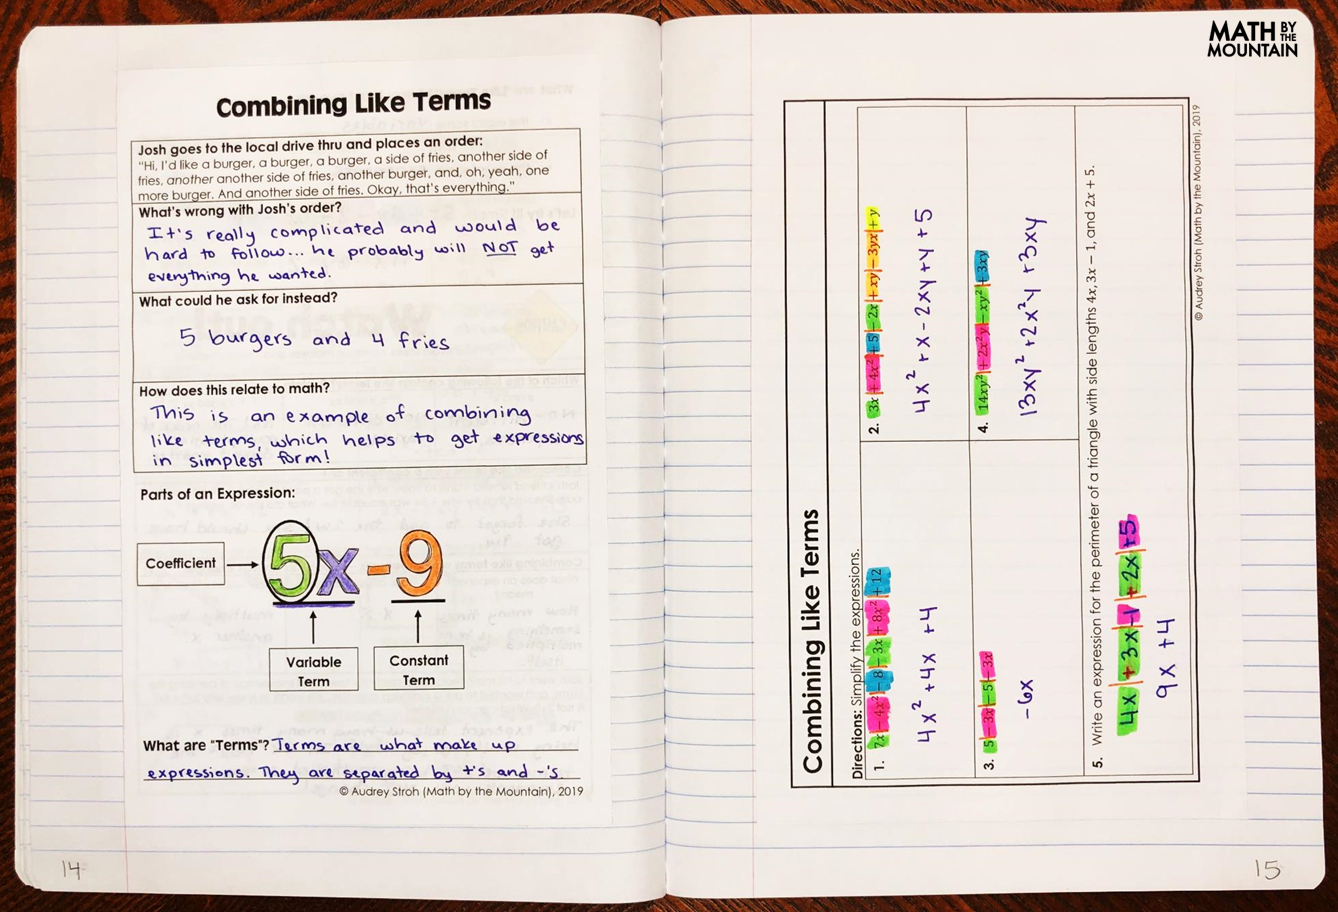 MATH BY THE MOUNTAIN
Combining Like Terms
Josh goes to the local drive thru and places an order:
"Hi, I'd like a burger, a burger, a burger, a side of fries, another side of
fries, another another side of fries, another burger, and, oh, yeah, one
more burger. And another side of fries. Okay, that's everything."
What's wrong with Josh's order?
It's really complicated and would be
hard to follow... he probably will NOT get
everything he wanted.
What could he ask for instead?
5 burgers and 4 fries
How does this relate to math?
This is an example of combining
like terms, which helps to get expressions
in simplest form!
Parts of an Expression:
Coefficient
5x - 9
Variable
Term
Constant
Term
What are "Terms"? Terms are what make up
expressions. They are separated by +'s and -'s.
© Audrey Stroh (Math by the Mountain), 2019
14
Combining Like Terms
Directions: Simplify the expressions.
1. 7x - 4x² - 8 - 3x + 8x² + 12
4x² + 4x + 4
2. 3x + 4x² + 5 - 2x + xy - 3yx + y
4x² + x - 2xy + y + 5
3. 5 - 3x - 5 - 3x
-6x
4. 14xy² + 2x²y - xy² + 3xy
13xy² + 2x²y + 3xy
5. Write an expression for the perimeter of a triangle with side lengths 4x, 3x − 1, and 2x + 5.
4x + 3x - 1 + 2x + 5
9x + 4
© Audrey Stroh (Math by the Mountain), 2019
15